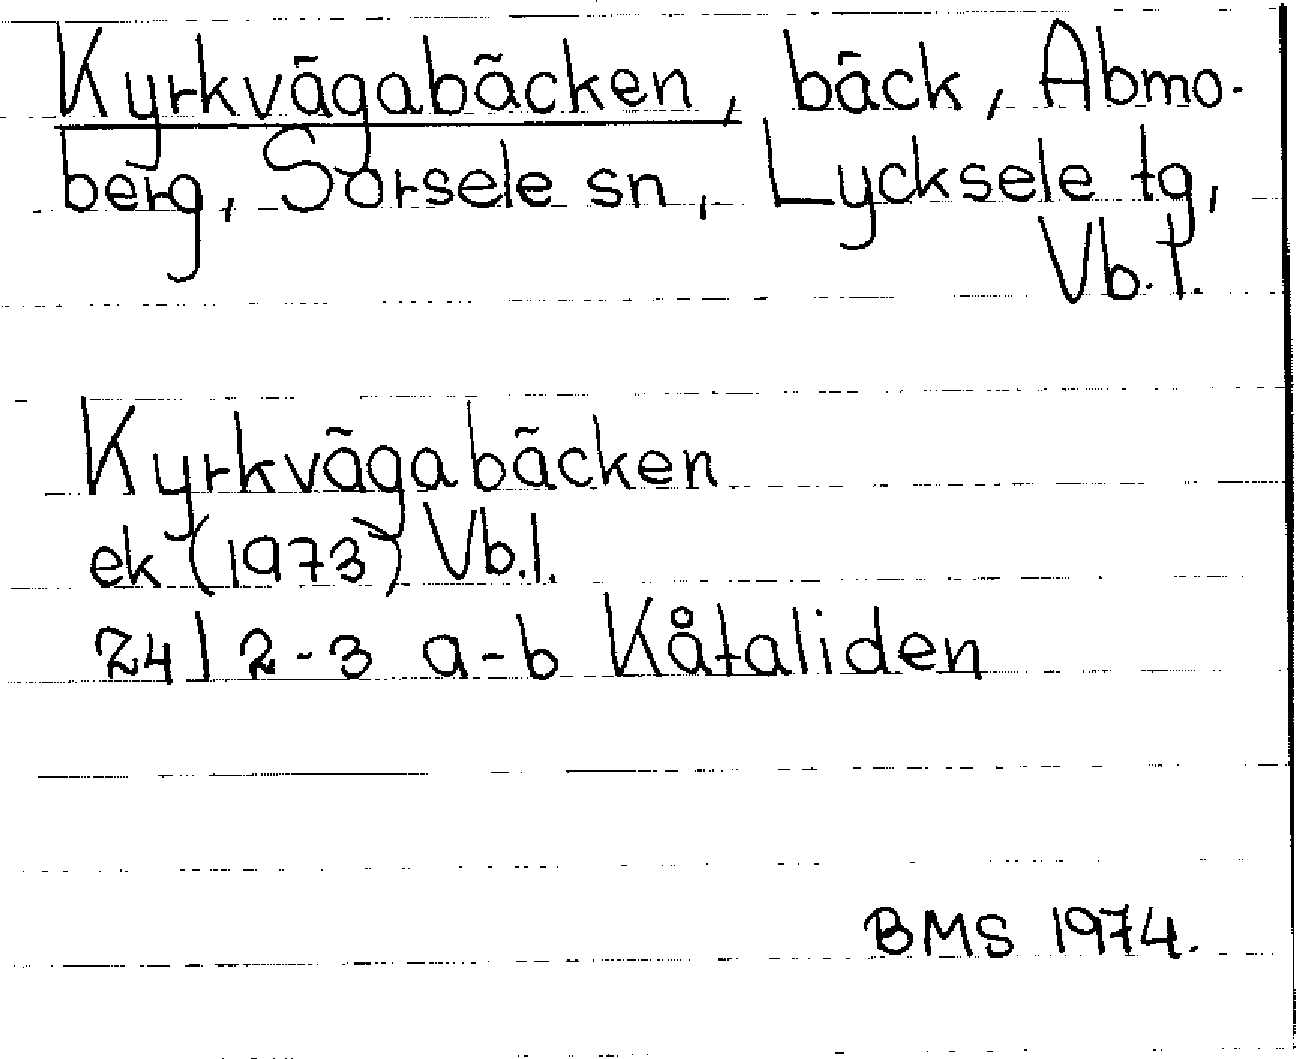 Kyrkvägabäcken, bäck, Abmo-
berg, Sorsele sn, Lycksele tg,
Vb.l.
Kyrkvägabäcken
ek (1973) Vb.l.
24J 2-3 a-b Kåtaliden
BMS 1974.